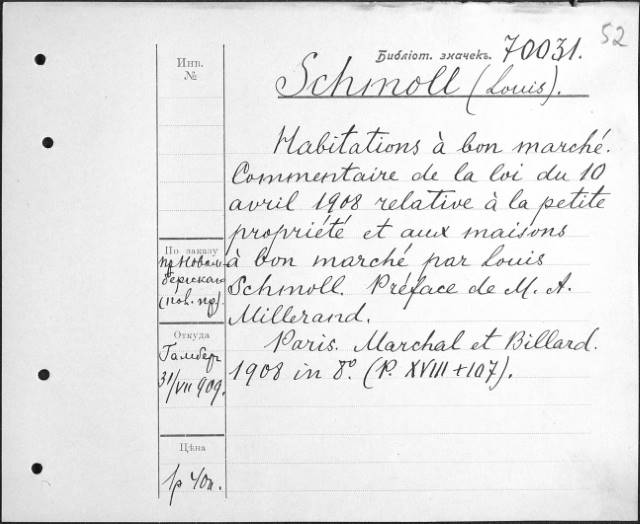 52
Библіот. значекъ. 70031.
Schmoll (Louis).
Инв.
№
Habitations à bon marché.
Commentaire de la loi du 10
avril 1908 relative à la petite
propriété et aux maisons
à bon marché par Louis
Schmoll. Préface de M. A.
Millerand.
Paris. Marchal et Billard.
1908 in 8°. (P. XVIII + 107).
По заказу
Откуда
31/VII 909.
Цѣна
1р 40к.